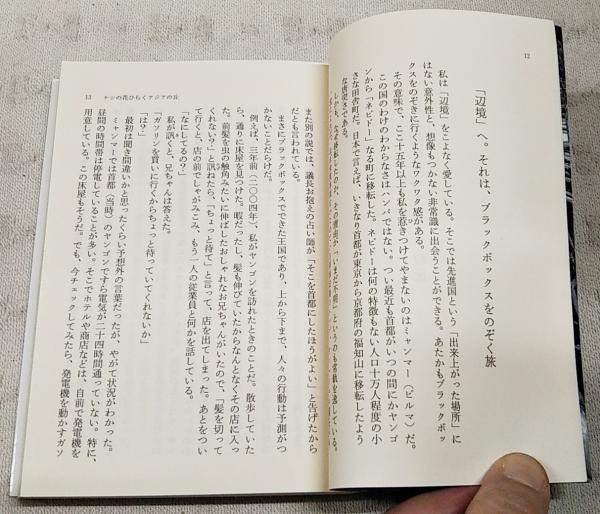 12
「辺境」へ。それは、ブラックボックスをのぞく旅
私は「辺境」をこよなく愛している。そこでは先進国という「出来上がった場所」に
はない意外性と、想像もつかない非常識に出会うことができる。あたかもブラックボッ
クスをのぞきに行くようなワクワク感がある。
その意味で、ここ十五年以上も私を惹きつけてやまないのはミャンマー（ビルマ）だ。
この国のわけのわからなさはハンパではない。つい最近も首都がいつの間にかヤンゴ
ンから「ネピドー」なる町に移転した。ネピドーは何の特徴もない人口十万人程度の小
さな田舎町だ。日本で言えば、いきなり首都が東京から京都府の福知山に移転したよう
な唐突さである。
13 ケシの花ひらくアジアの丘
また別の説では、議長お抱えの占い師が「そこを首都にしたほうがよい」と告げたから
とも言われている。
まさにブラックボックスでできた王国であり、上から下まで、人々の行動は予測がつ
かないことだらけだ。
例えば、三年前（二〇〇四年）、私がヤンゴンを訪れたときのことだ。散歩していた
ら、通りに床屋を見つけた。暇だったし、髪も伸びていたからなんとなくその店に入っ
た。前髪を虫の触角みたいに伸ばしたおしゃれなお兄ちゃんがいたので、「髪を切って
くれない？」と訊ねたら、「ちょっと待て」と言って、店を出てしまった。あとをつい
て行くと、店の前でしゃがみこみ、もう一人の従業員と何かを話している。
「なにしてるの？」
私が訊くと、兄ちゃんは答えた。
「ガソリンを買いに行くからちょっと待っていてくれないか」
「は？」
最初は聞き間違いかと思ったくらい予想外の言葉だったが、やがて状況がわかった。
ミャンマーでは首都（当時）のヤンゴンですら電気が二十四時間通っていない。特に、
昼間の時間帯は停電していることが多い。そこでホテルや商店などは、自前で発電機を
用意している。この床屋もそうだ。でも、今チェックしてみたら、発電機を動かすガソ